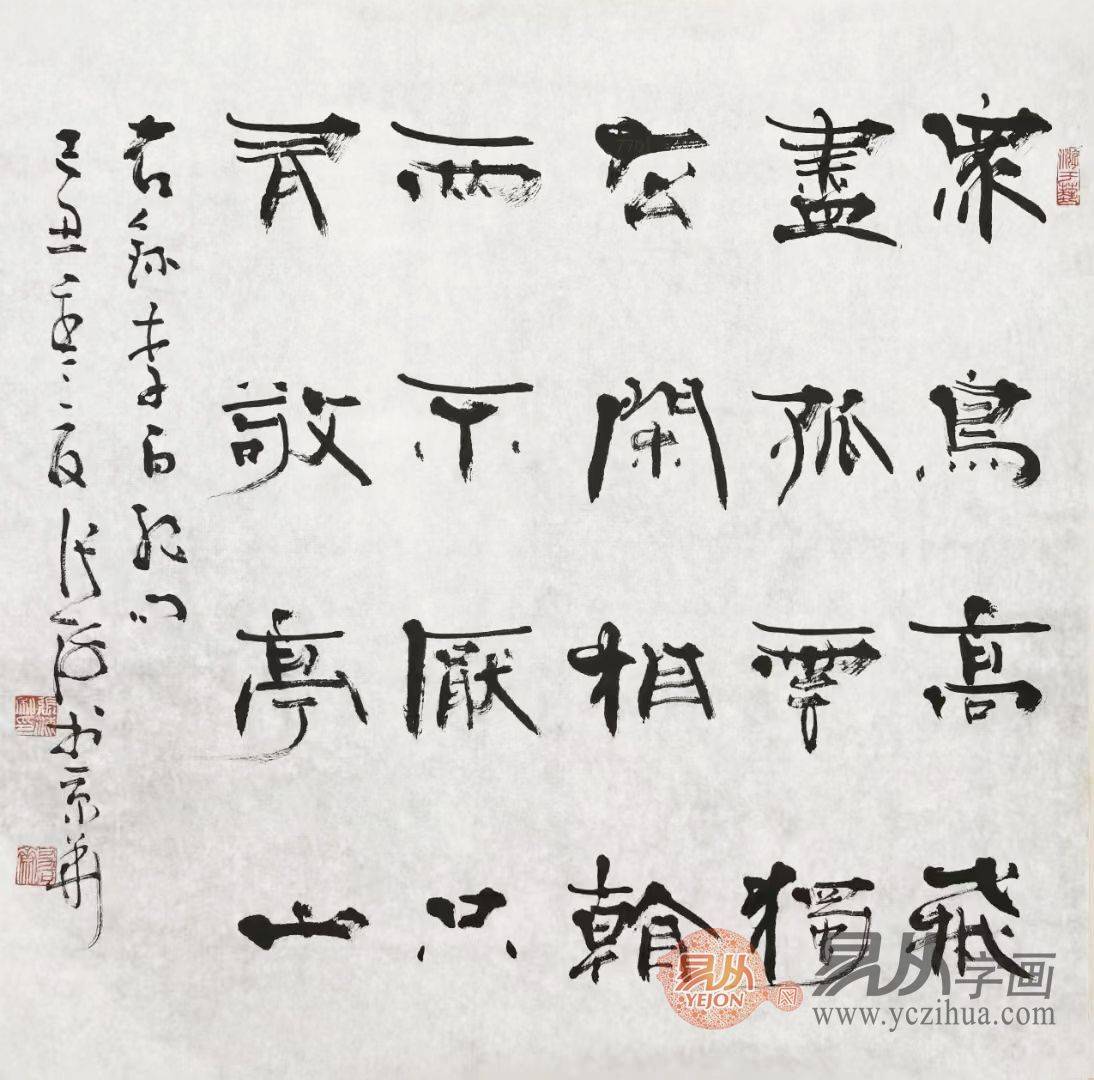 衆鳥高飛
盡孤雲獨
去閑相看
兩不厭只
有敬亭山
錄李白
己丑 書京華
易从
YEJON
易从字画
www.yczihua.com